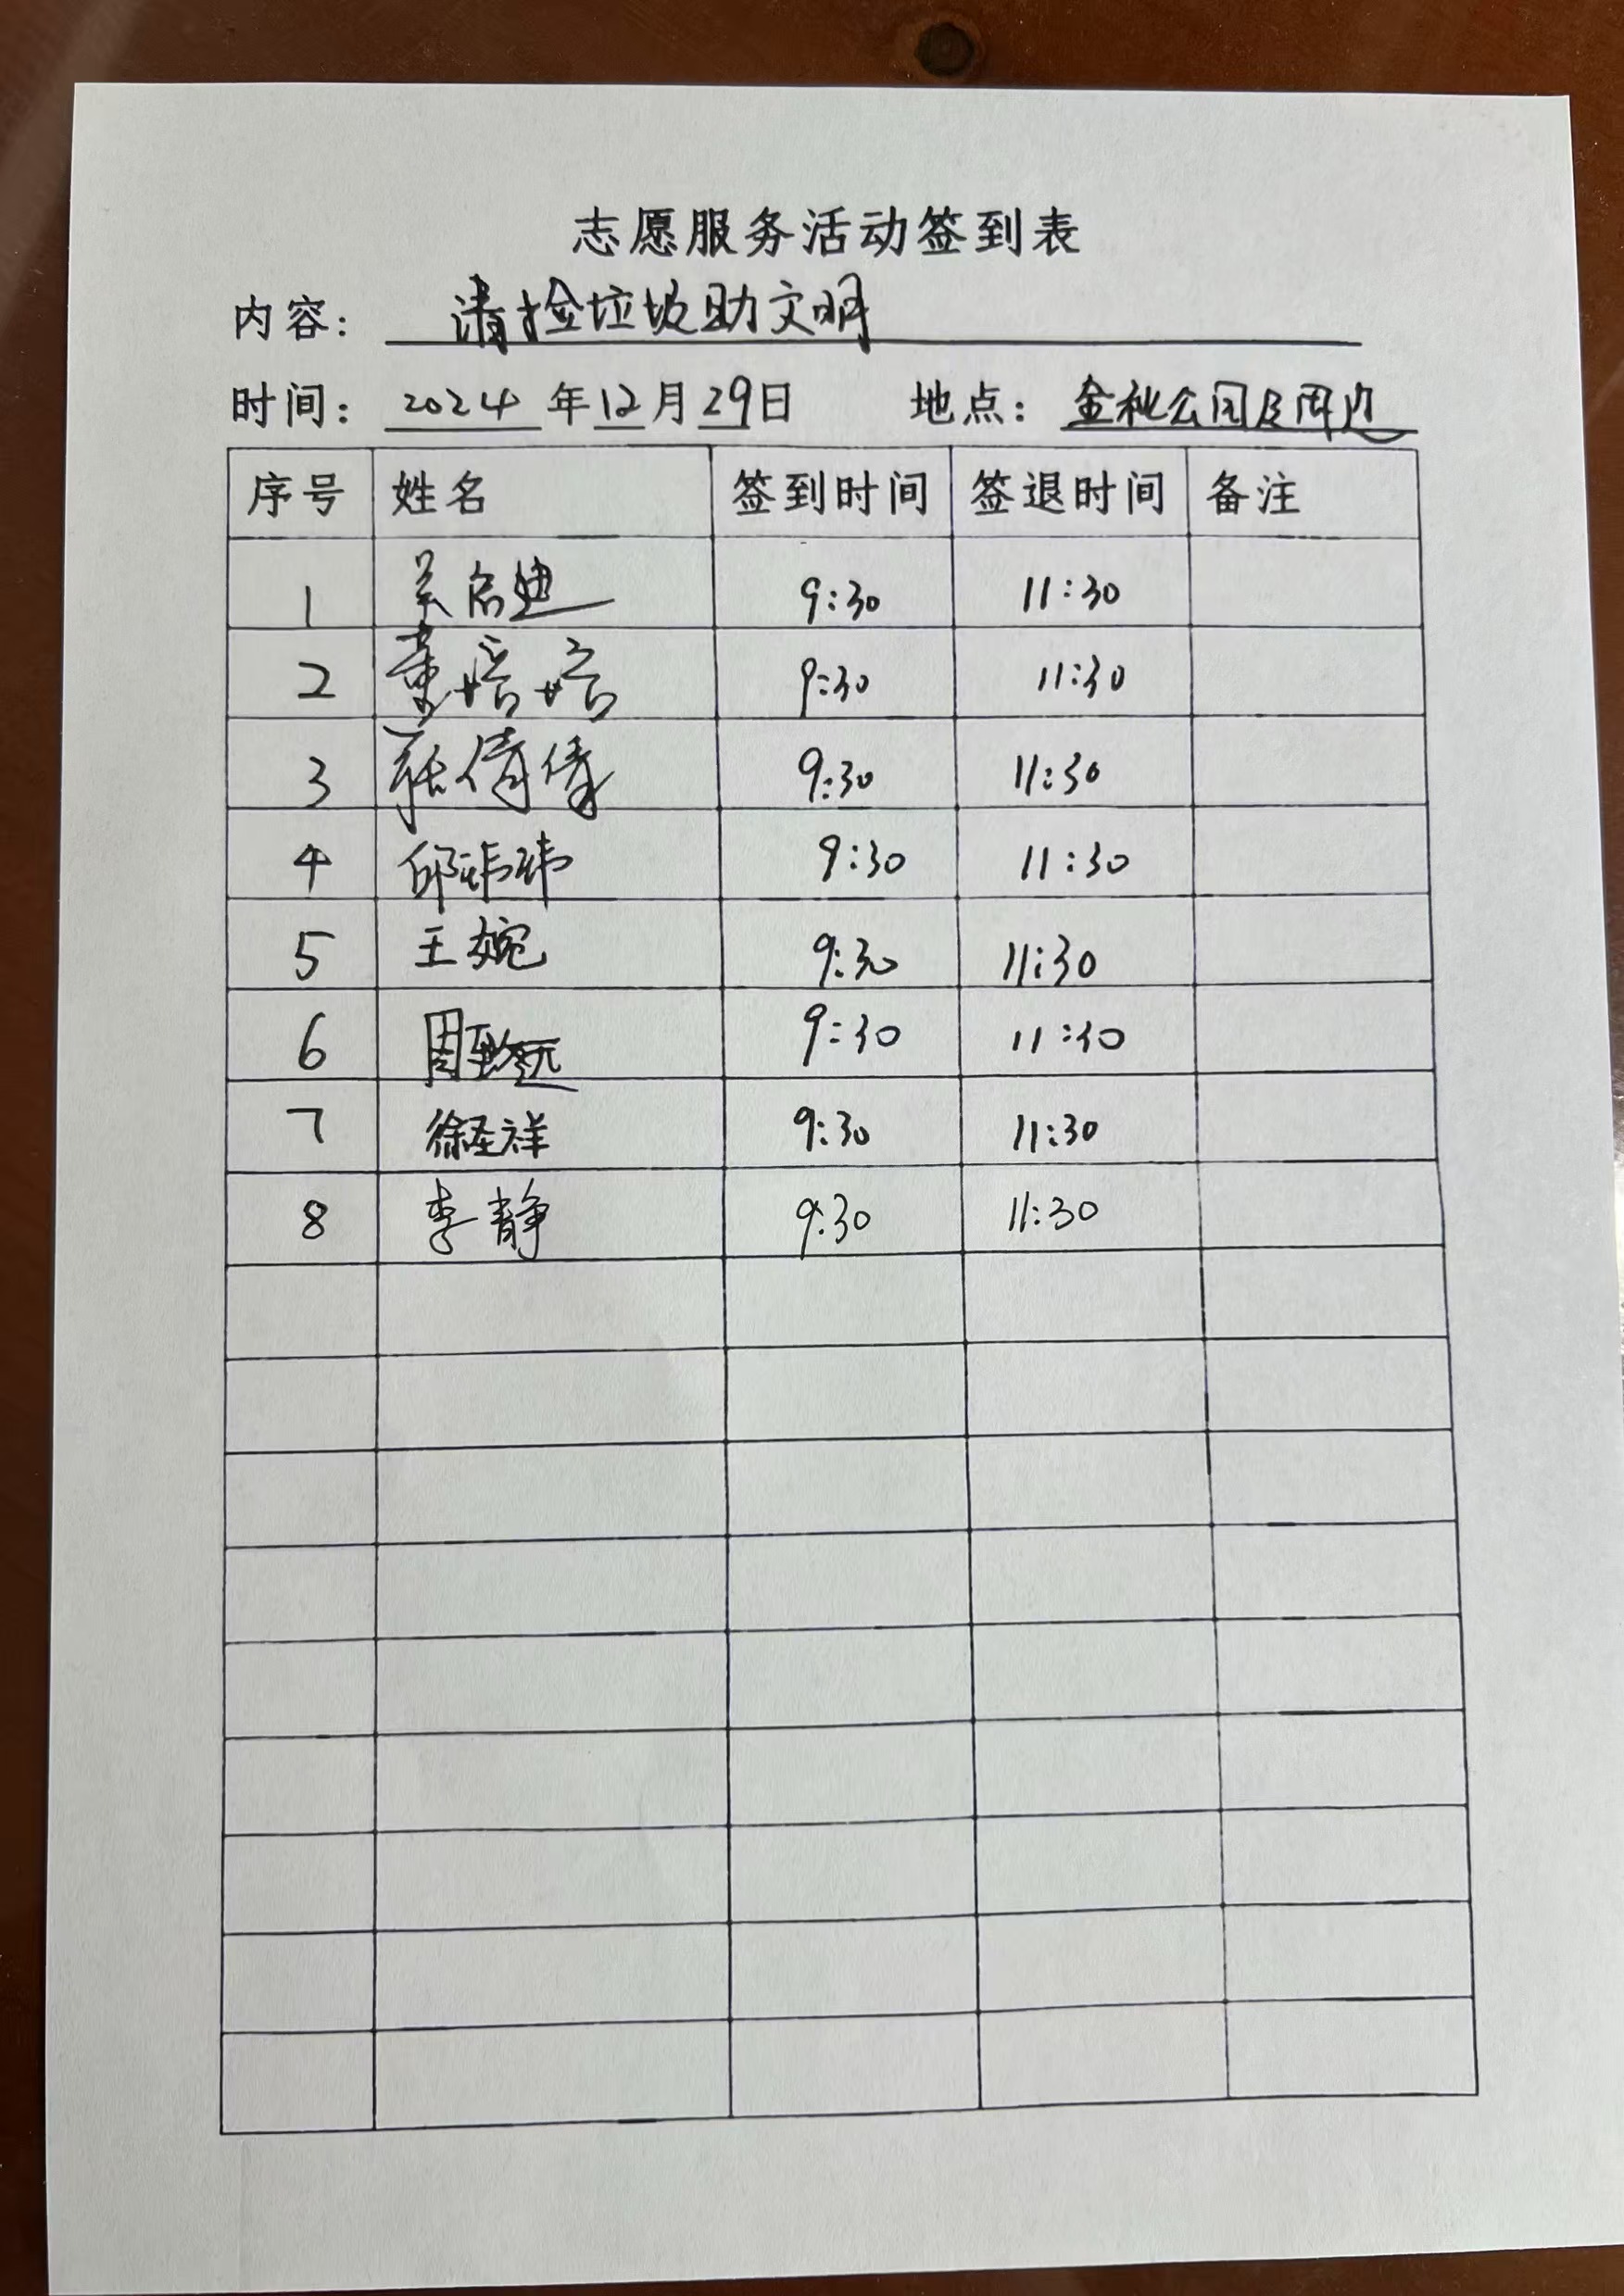 志愿服务活动签到表
内容： 清捡垃圾助文明
时间： 2024 年 12 月 29 日 地点： 金秋公园及周边
序号 姓名 签到时间 签退时间 备注
1 9:30 11:30
2 董培培 9:30 11:30
3 倩倩 9:30 11:30
4 邱玮玮 9:30 11:30
5 王婉 9:30 11:30
6 周致远 9:30 11:30
7 徐圣祥 9:30 11:30
8 李静 9:30 11:30